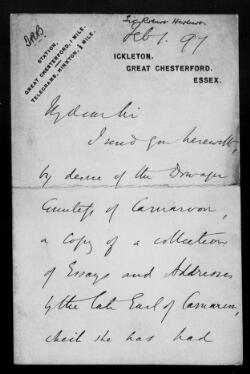 Feb 1. 97
STATION,
GREAT CHESTERFORD, 1 MILE.
TELEGRAMS, HINXTON, ½ MILE.
ICKLETON,
GREAT CHESTERFORD.
ESSEX.
My dear Sir
I send you herewith,
by desire of the Dowager
Countess of Carnarvon,
a copy of a collection
of Essays and Addresses
by the late Earl of Carnarvon,
which she has had